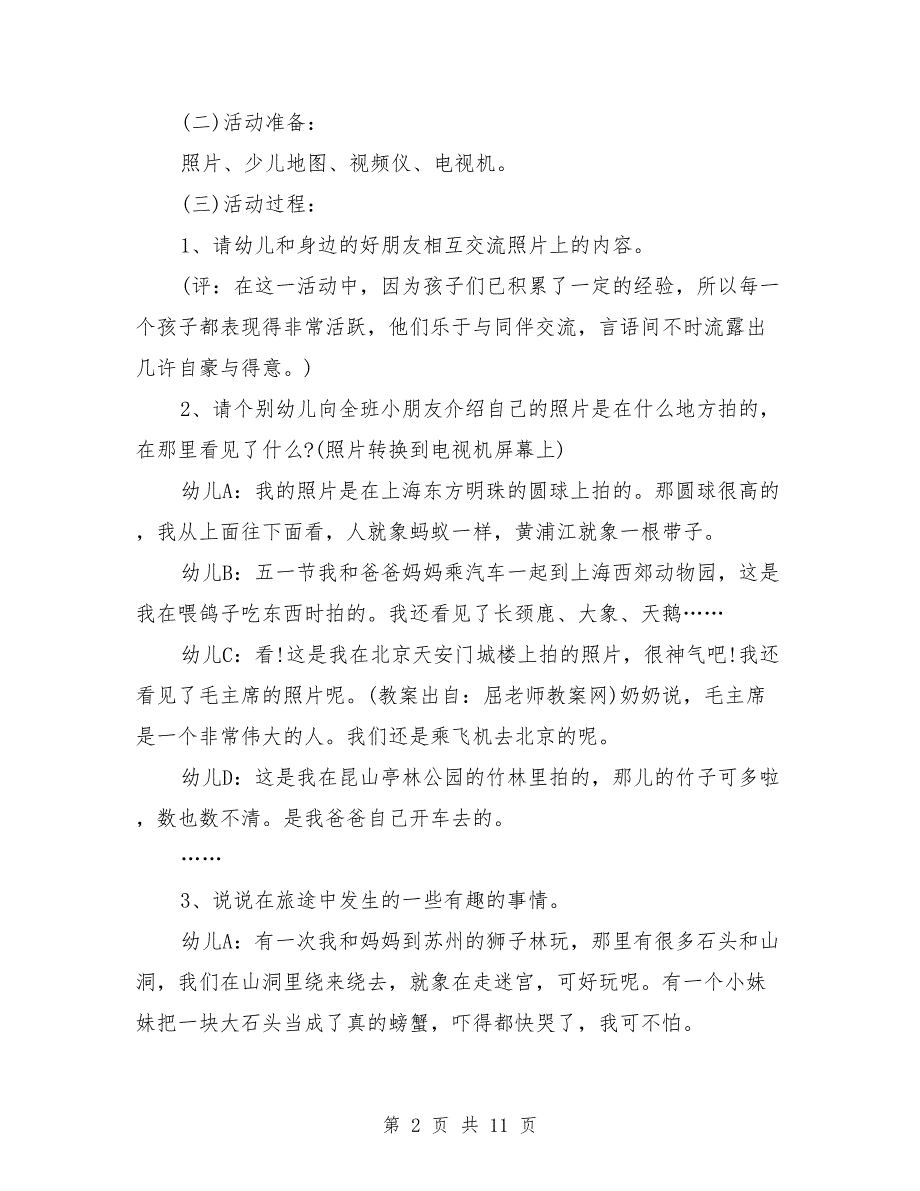 (二)活动准备：
照片、少儿地图、视频仪、电视机。
(三)活动过程：
1、请幼儿和身边的好朋友相互交流照片上的内容。
(评：在这一活动中，因为孩子们已积累了一定的经验，所以每一
个孩子都表现得非常活跃，他们乐于与同伴交流，言语间不时流露出
几许自豪与得意。)
2、请个别幼儿向全班小朋友介绍自己的照片是在什么地方拍的，
在那里看见了什么?(照片转换到电视机屏幕上)
幼儿A：我的照片是在上海东方明珠的圆球上拍的。那圆球很高的
，我从上面往下面看，人就象蚂蚁一样，黄浦江就象一根带子。
幼儿B：五一节我和爸爸妈妈乘汽车一起到上海西郊动物园，这是
我在喂鸽子吃东西时拍的。我还看见了长颈鹿、大象、天鹅……
幼儿C：看!这是我在北京天安门城楼上拍的照片，很神气吧!我还
看见了毛主席的照片呢。(教案出自：屈老师教案网)奶奶说，毛主席
是一个非常伟大的人。我们还是乘飞机去北京的呢。
幼儿D：这是我在昆山亭林公园的竹林里拍的，那儿的竹子可多啦
，数也数不清。是我爸爸自己开车去的。
……
3、说说在旅途中发生的一些有趣的事情。
幼儿A：有一次我和妈妈到苏州的狮子林玩，那里有很多石头和山
洞，我们在山洞里绕来绕去，就象在走迷宫，可好玩呢。有一个小妹
妹把一块大石头当成了真的螃蟹，吓得都快哭了，我可不怕。
第 2 页 共 11 页